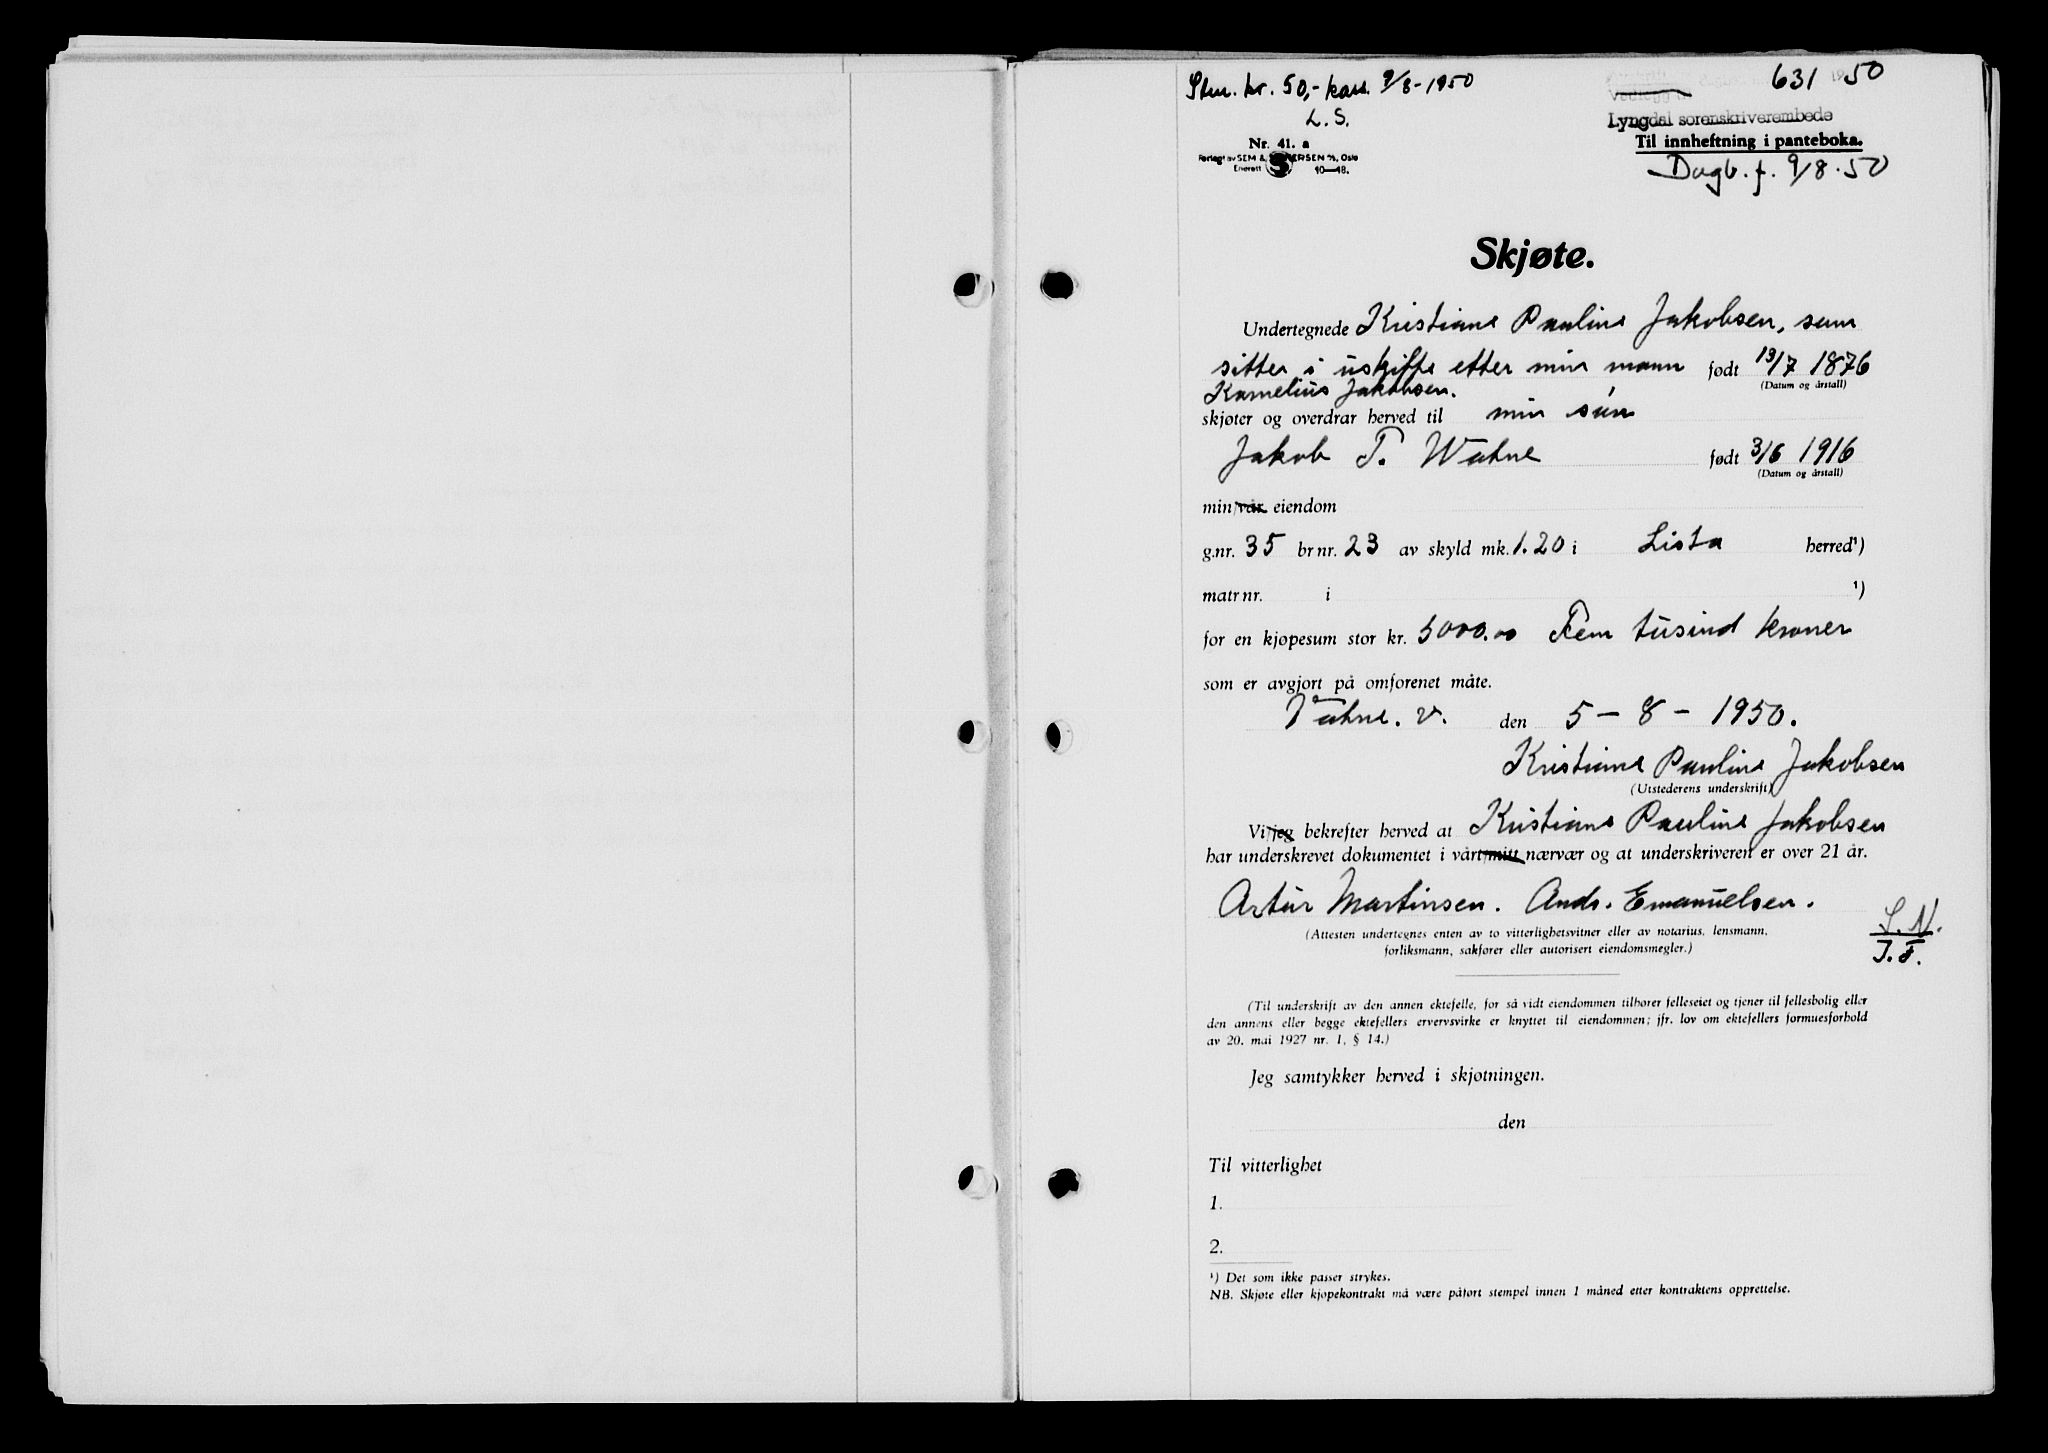 Stm. kr. 50,- kass. 9/8-1950
L. S.
631 50
Vedlegg til
Lyngdal sorenskriverembede
Nr. 41. a
Til innheftning i panteboka.
Forlagt av SEM & STENERSEN A/S, Oslo
Enerett S 10—48.
Dagb. f. 9/8.50
Skjøte.
Undertegnede Kristiane Pauline Jakobsen, som
sitter i uskifte etter min mann født 13/7 1876
(Datum og årstall)
Kornelius Jakobsen.
skjøter og overdrar herved til min sön
Jakob T. Watne født 3/6 1916
(Datum og årstall)
min/vår eiendom
g.nr. 35 br nr. 23 av skyld mk. 1.20 i Lista herred¹)
matr nr. i ¹)
for en kjøpesum stor kr. 5000.00 Fem tusind kroner
som er avgjort på omforenet måte.
Våtne. v. den 5 – 8 – 1950.
Kristiane Pauline Jakobsen
(Utstederens underskrift)
Vi/jeg bekrefter herved at Kristiane Pauline Jakobsen
har underskrevet dokumentet i vårt/mitt nærvær og at underskriveren er over 21 år.
Artur Martinsen. Ands. Emanuelsen.
S.N.
J.F.
(Attesten undertegnes enten av to vitterlighetsvitner eller av notarius, lensmann,
forliksmann, sakfører eller autorisert eiendomsmegler.)
(Til underskrift av den annen ektefelle, for så vidt eiendommen tilhører felleseiet og tjener til fellesbolig eller
den annens eller begge ektefellers ervervsvirke er knyttet til eiendommen; jfr. lov om ektefellers formuesforhold
av 20. mai 1927 nr. 1, § 14.)
Jeg samtykker herved i skjøtningen.
den
Til vitterlighet
1.
2.
¹) Det som ikke passer strykes.
NB. Skjøte eller kjøpekontrakt må være påført stempel innen 1 måned etter kontraktens opprettelse.